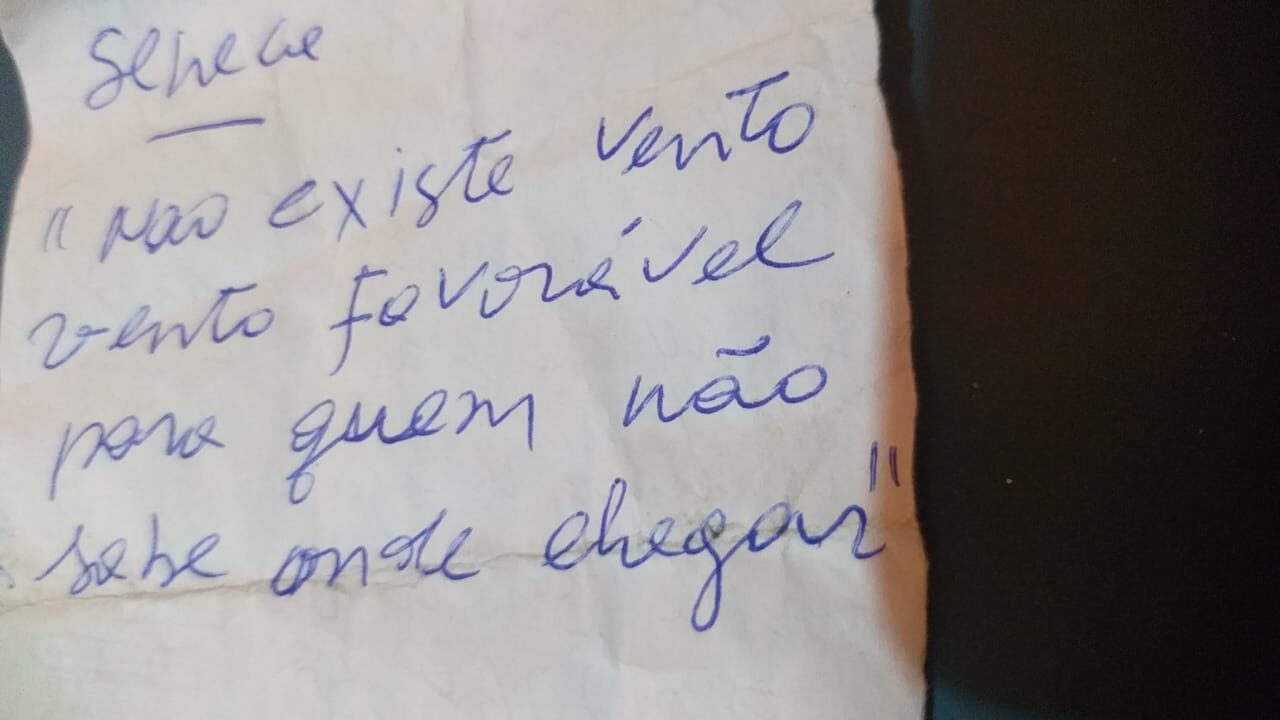 Seneca
"Não existe vento
vento favorável
para quem não
sabe onde chegar"